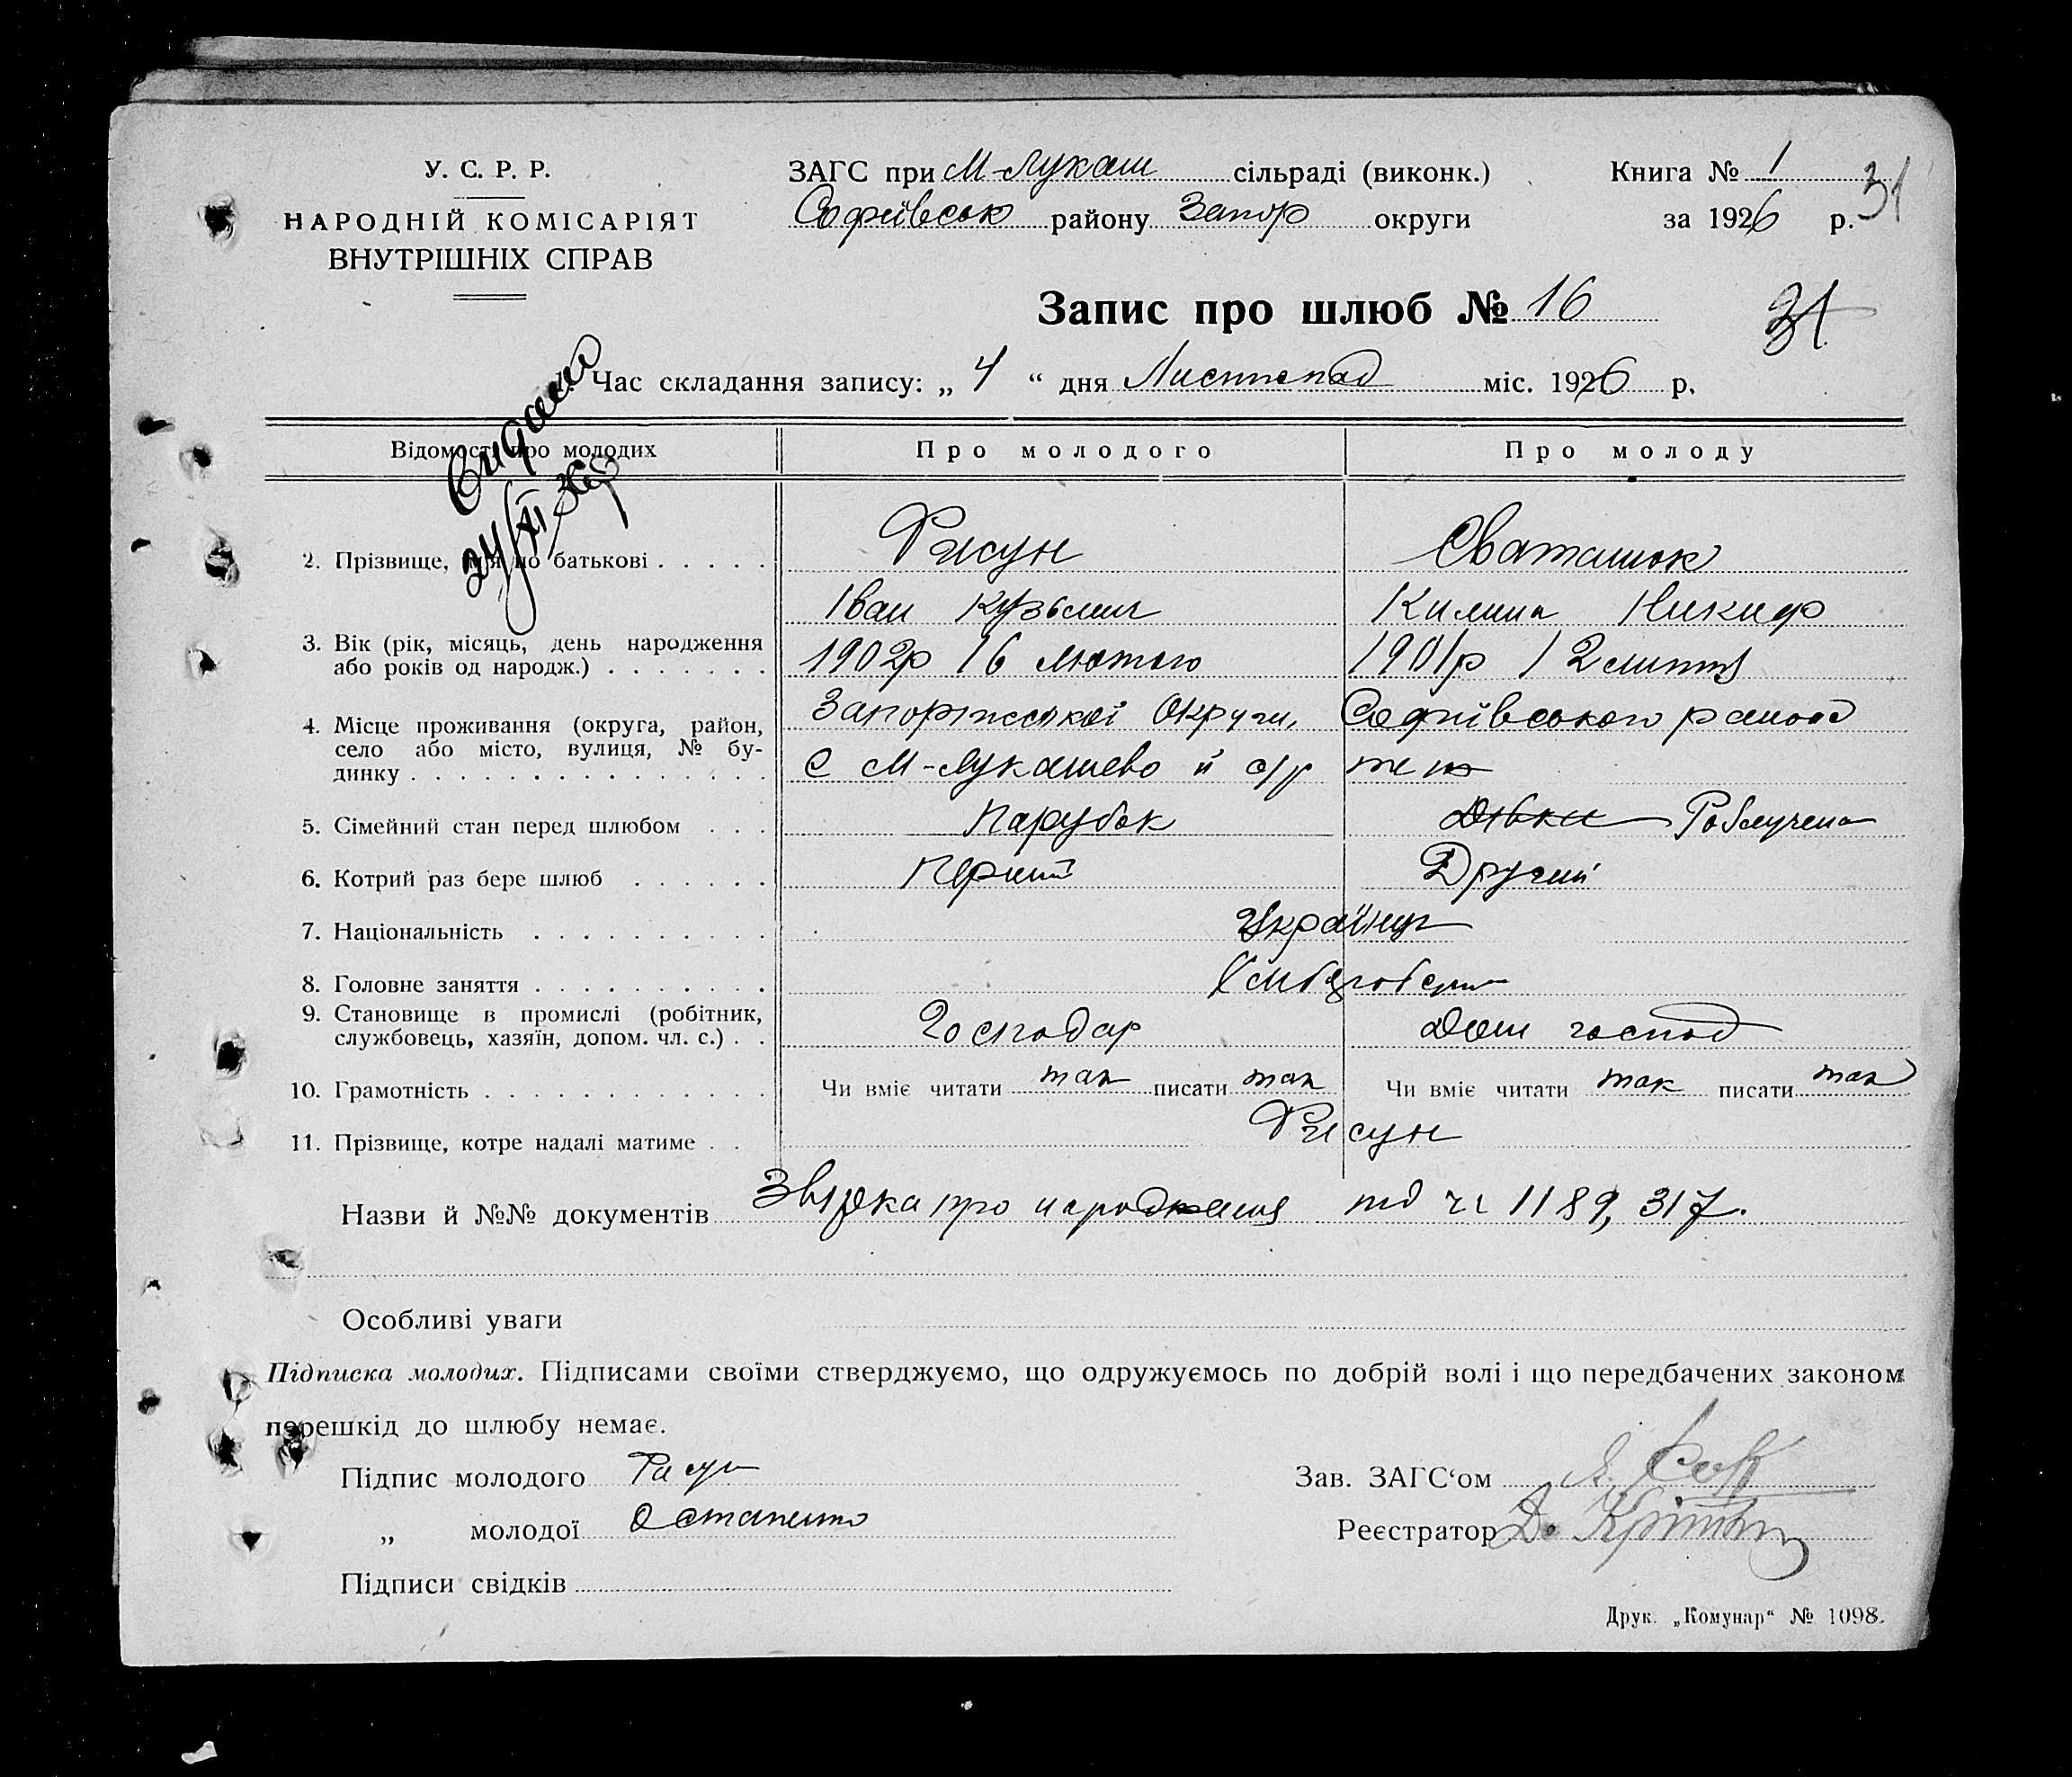 У. С. Р. Р.
НАРОДНІЙ КОМІСАРІЯТ
ВНУТРІШНІХ СПРАВ
ЗАГС при М-Лукаш сільраді (виконк.)
Софиівськ району Запор округи
Книга № 1
за 1926 р.
31
Запис про шлюб № 16
31
1. Час складання запису: „ 4 “ дня Листопад міс. 1926 р.
Відомості про молодих Про молодого Про молоду
2. Прізвище, ім'я по батькові Рисун
Іван Кузьмич Килина Никиф
3. Вік (рік, місяць, день народження
або років од народж.) 1902р 16 лютого 1901р 12
4. Місце проживання (округа, район,
село або місто, вулиця, № бу-
динку Запоріжської Округи, Софиівського району
с М-Лукашево й с/р теж
5. Сімейний стан перед шлюбом Парубок Дівка Розлучена
6. Котрий раз бере шлюб Перший Другий
7. Національність Українці
8. Головне заняття
9. Становище в промислі (робітник,
службовець, хазяїн, допом. чл. с.) Господар Дом господ
10. Грамотність Чи вміє читати так писати так Чи вміє читати так писати так
11. Прізвище, котре надалі матиме Рисун
Назви й №№ документів про народження 1189, 317.
Особливі уваги
Підписка молодих. Підписами своїми стверджуємо, що одружуємось по добрій волі і що передбачених законом
перешкід до шлюбу немає.
Підпис молодого
„ молодої
Підписи свідків
Зав. ЗАГС‘ом
Реєстратор
Друк. „Комунар“ № 1098.